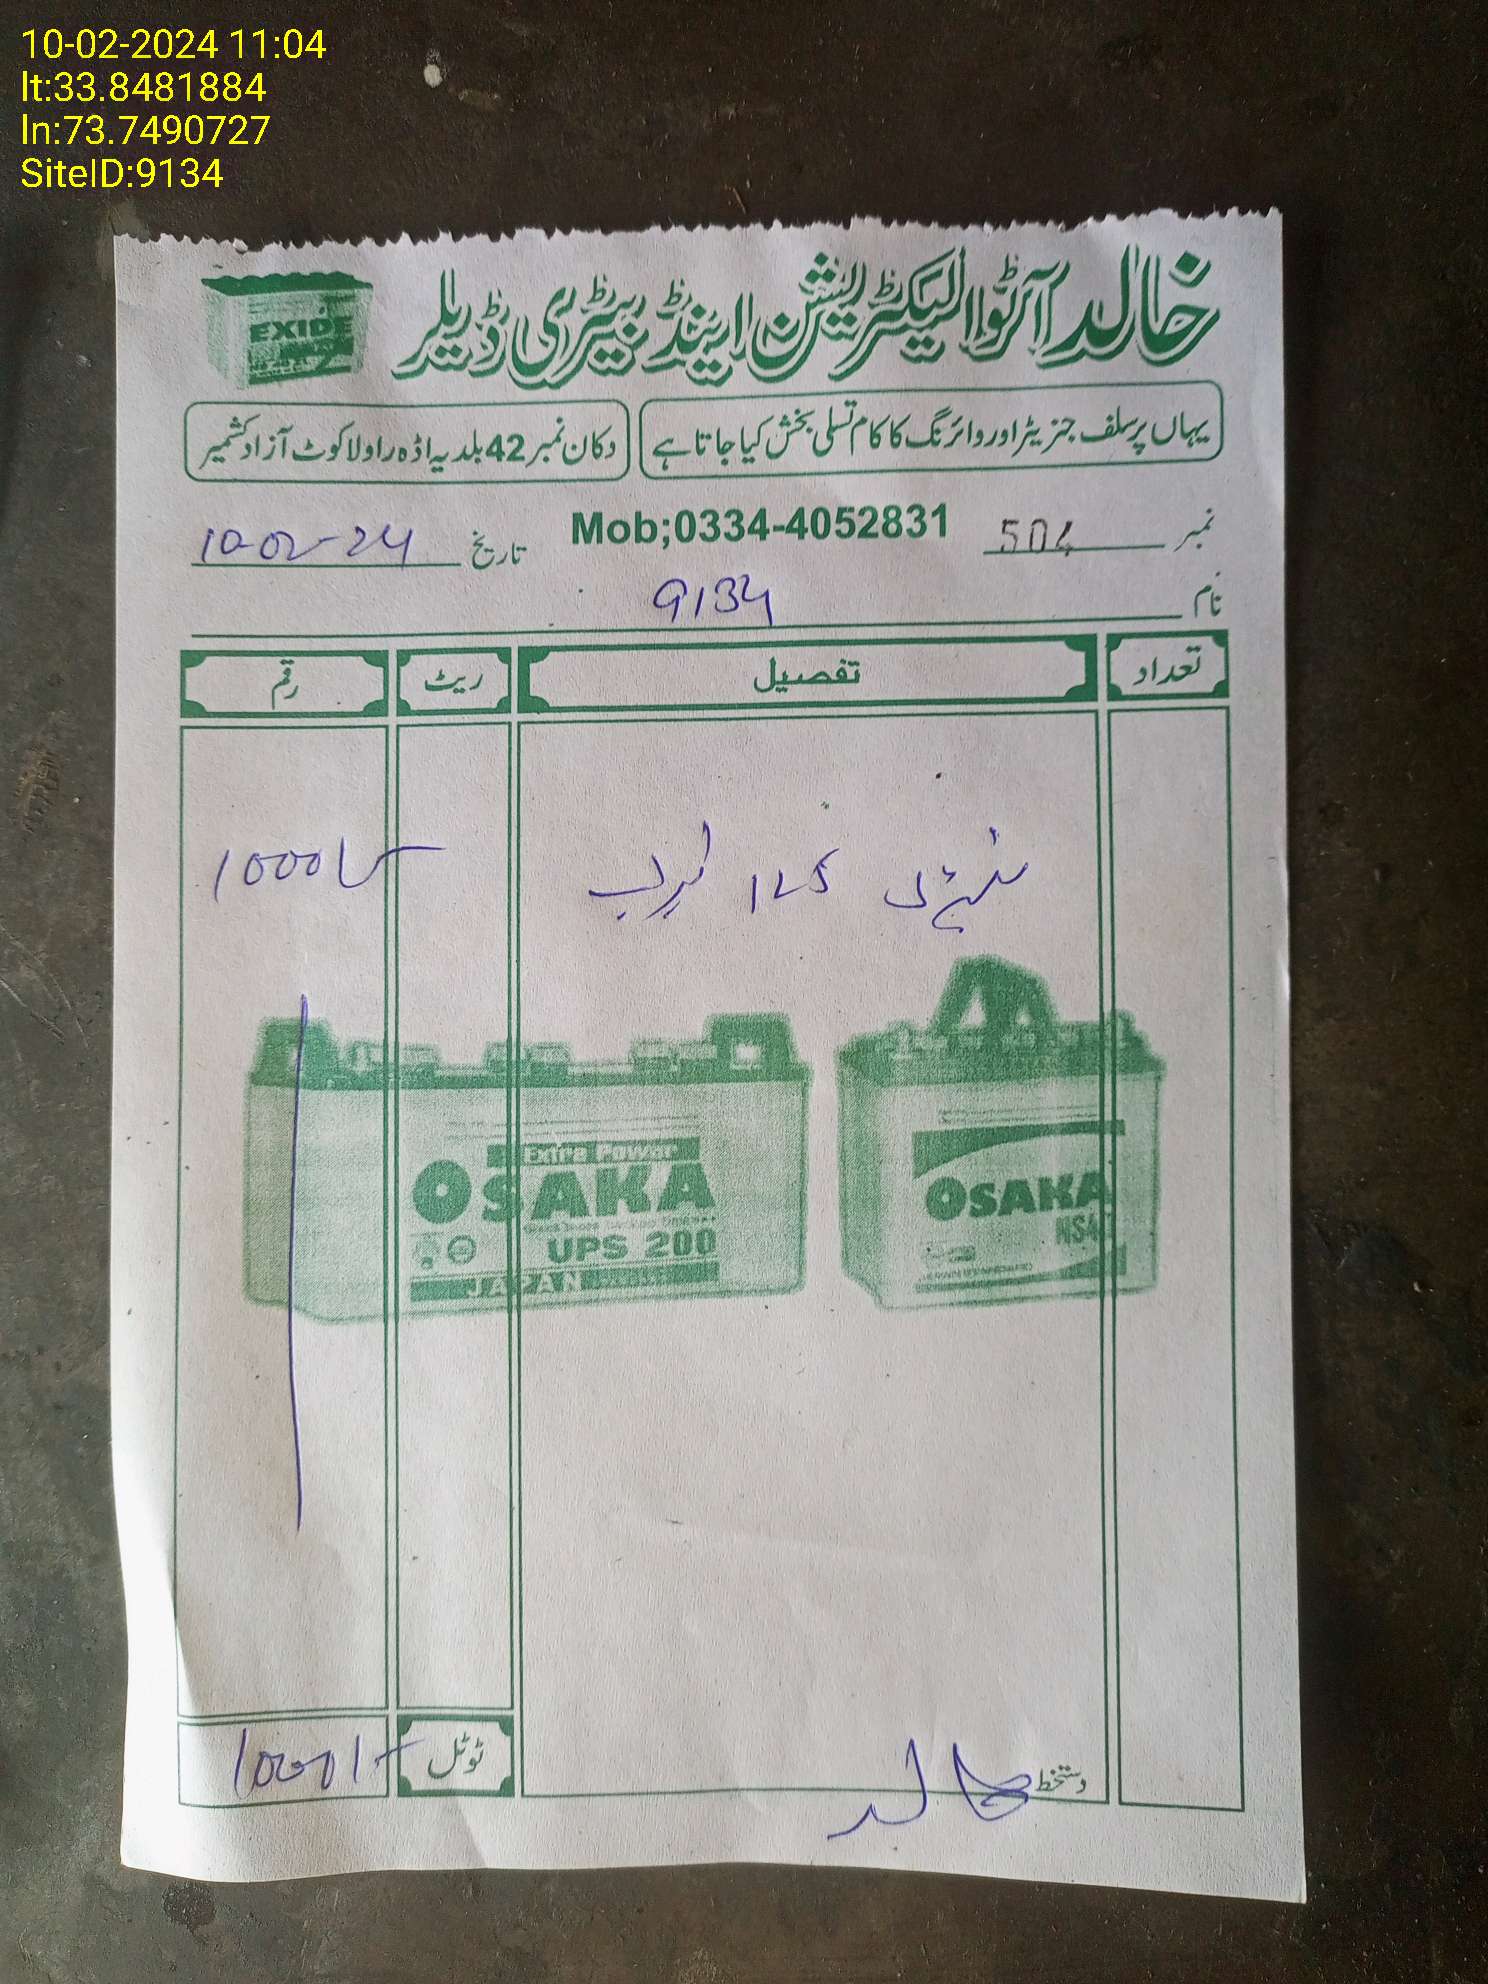 10-02-2024 11:04
lt:33.8481884
ln:73.7490727
SiteID:9134
خالد آٹو الیکٹریشن اینڈ بیٹری ڈیلر
EXIDE
یہاں پر سلف جنریٹر اور وائرنگ کا کام تسلی بخش کیا جاتا ہے
دکان نمبر 42 بلدیہ اڈہ راولاکوٹ آزاد کشمیر
نمبر 504
Mob;0334-4052831
تاریخ 10-02-24
نام 9134
تعداد تفصیل ریٹ رقم
1000/-
Extra Power
OSAKA
UPS 200
JAPAN
OSAKA
دستخط خالد
ٹوٹل 1000/-